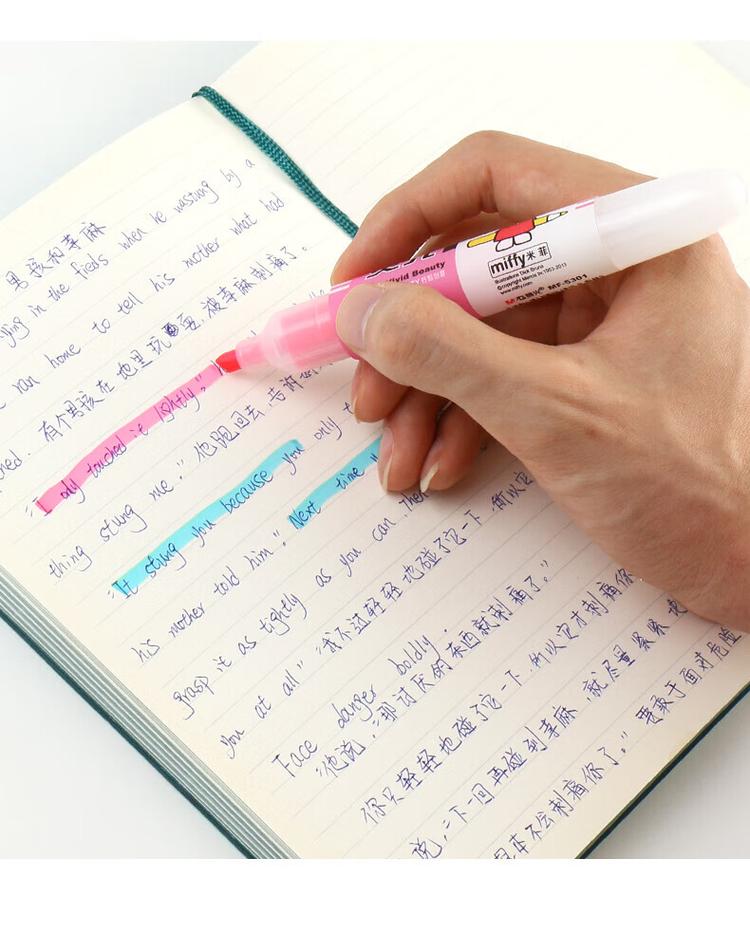 男孩和荨麻
ying in the fields when he was stung by a
ran home to tell his mother what had
ned. 有个男孩在地里玩耍,被荨麻刺痛了。
"I only touched it lightly."
thing stung me." 他跑回去,告诉
"It stung you because you only t
his mother told him." Next time
grasp it as tightly as you can, then
you at all" "我不过轻轻地碰了它一下,所以它
Face danger boldly.
"他说,"那讨厌的东西就刺痛了。"
你只轻轻地碰了它一下,所以它才刺痛你
说,"下一回再碰到荨麻,就尽量紧紧地
不会刺痛你了。" 要敢于面对危险
Vivid Beauty
miffy 米菲
Illustrations Dick Bruna
©copyright Mercis bv,1953-2013
www.miffy.com
MF-5301